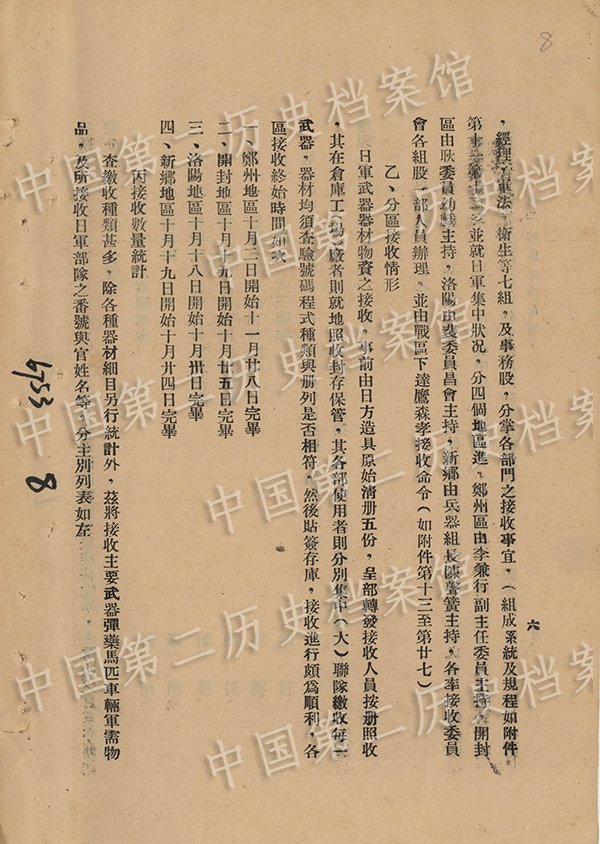 8
六
，經理，軍法，衛生等七組，及事務股，分掌各部門之接收事宜，（組成系統及規程如附件
第十），並就日軍集中狀況，分四個地區進，鄭州區由李兼行副主任委員主持，開封
區由耿委員幼麟主持，洛陽由裴委員昌會主持，新鄉由兵器組長陳聲簧主持，各率接收委員
會各組股一部人員辦理，並由戰區下達鷹森孝接收命令（如附件第十三至第廿七）
乙、分區接收情形
日軍武器器材物資之接收，事前由日方造具原始清册五份，呈部轉發接收人員按册照收
，其在倉庫工（場）廠者則就地照收封存保管，其各部使用者則分別集中（大）聯隊繳收每一
武器，器材均須查驗號碼程式種類與册列是否相符，然後貼簽存庫，接收進行頗為順利，各
區接收終始時間如次
一、鄭州地區十月三日開始十一月廿八日完畢
二、開封地區十月十九日開始十月廿五日完畢
三、洛陽地區十月十八日開始十月卅日完畢
四、新鄉地區十月十九日開始十月廿四日完畢
丙接收數量統計
查繳收種類甚多，除各種器材細目另行統計外，茲將接收主要武器彈藥馬匹車輛軍需物
品，及所接收日軍部隊之番號與官姓名等，分主別列表如左
6453 8
中国第二历史档案馆
中国第二历史档案馆
中国第二历史档案馆
中国第二历史档案馆
中国第二历史档案馆
中国第二历史档案馆